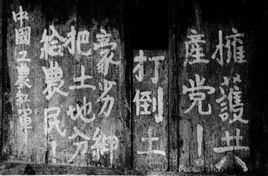 擁護共
產党!
打倒土
豪劣紳
把土地分
給農民!
中國工農紅軍